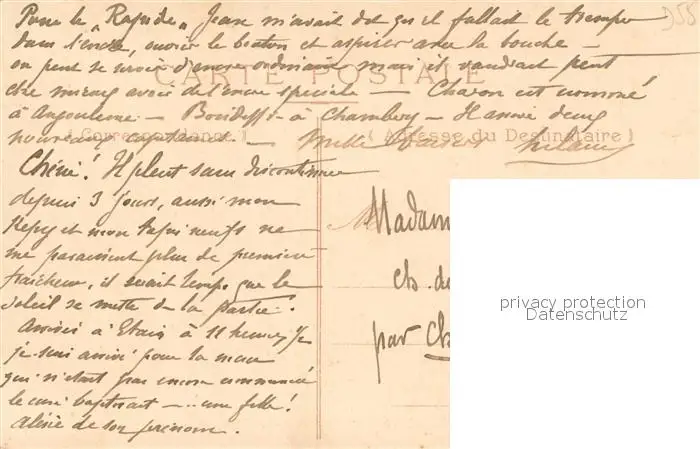 Pour le "Rapide" Jean m'avait dit qu'il fallait le tremper
dans l'encre, ouvrir le bouton et aspirer avec la bouche –
on peut se servir d'encre ordinaire mais il vaudrait peut
CARTE POSTALE
être mieux avoir de l'encre spéciale – Charon est nommé
à Angoulème – à Chambéry – Il arrive deux
nouveaux capitaines. – Mille
(Correspondance) (Adresse du Destinataire)
Chérie! Il pleut sans discontinuer
depuis 3 jours, aussi mon
Képi et mon képi neufs ne
me paraissent plus de première
fraîcheur, il serait temps que le
soleil se mette de la partie.
Arrivés à Etain à 11 heures
je suis arrivé pour la
qui n'était pas encore commencé
le curé baptisait – .. une fille!
Alésie de son prénom.
Madam
ch. de
par Ch
privacy protection
Datenschutz
958